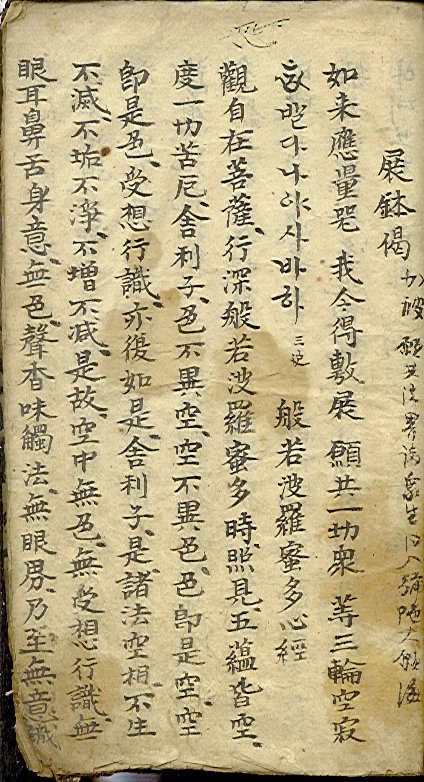 展鉢偈
如来應量器 我今得敷展 願共一切衆 等三輪空寂
발다나야사바하 三遍 般若波羅蜜多心經
觀自在菩薩、行深般若波羅蜜多時、照見五蘊皆空、
度一切苦厄、舍利子、色不異空、空不異色、色卽是空、空
卽是色、受想行識、亦復如是、舍利子、是諸法空相、不生
不滅、不垢不淨、不增不减、是故、空中無色、無受想行識、無
眼耳鼻舌身意、無色聲香味觸法、無眼界、乃至無意識